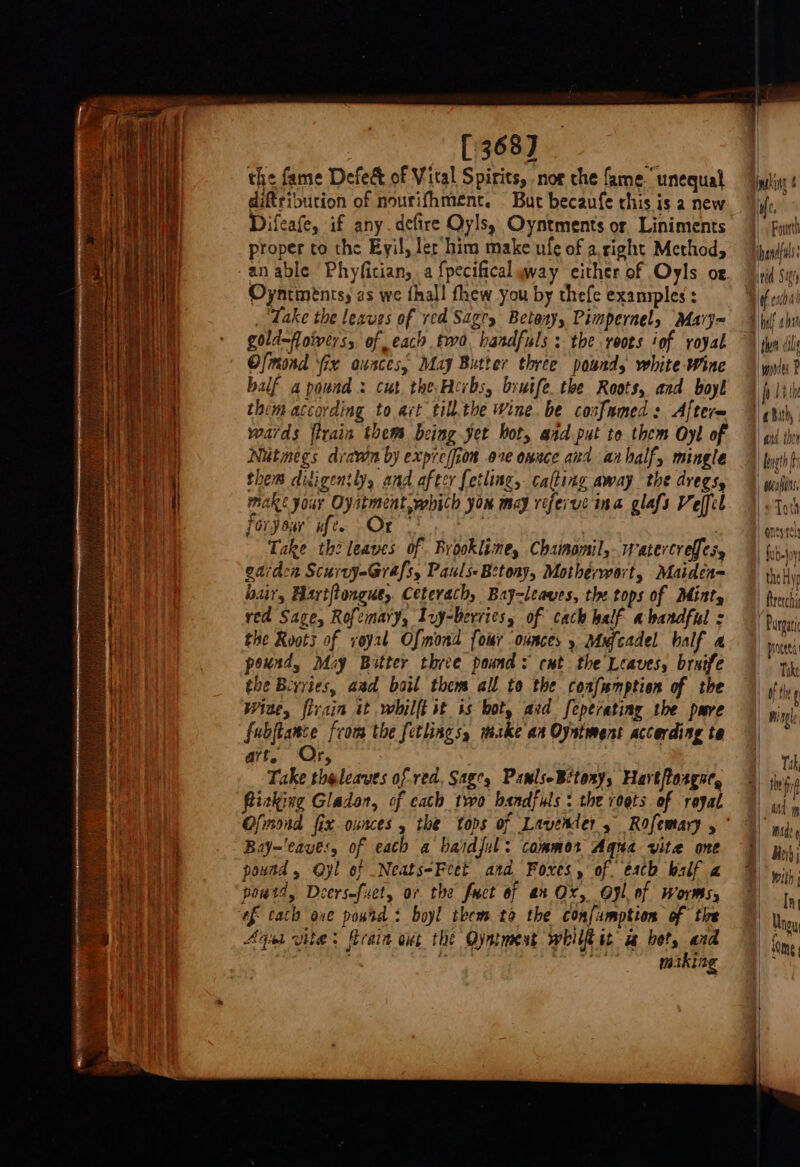 [368]
the ſame Defect of Vital Spirits, nor the ſame unequal
diſtribution of nouriſhment. But becauſe this is a new
Diſeaſe, if any deſire Oyls, Oyntments or Liniments
proper to the Evil, let him make uſe of a right Method,
an able Phyſitian, a ſpecifical way either of Oyls or
Oyntments, as we ſhall ſhew you by theſe examples:
Take the leaves of red Sage, Betony, Pimpernel, Mary-
gold-flowers, of each two handfuls: the roots of royal
Oſmond ſix ounces, May Butter three pound, white Wine
half a pound: cut the Herbs, bruiſe the Roots, and boyl
them according to art till the Wine be conſumed: After-
wards ſtrain them being yet hot, and put to them Oyl of
Nutmegs drawn by expreſſion one ounce and an half, mingle
them diligently, and after ſetling, caſting away the dregs,
make your Oyntment, which you may reſerve in a glaſs Veſſel
for your uſe. Or
Take the leaves of Brooklime, Chamomil, Watercreſſes,
garden Scurvy-Graſs, Pauls-Betony, Motherwort, Maiden-
hair, Hartſtongue, Ceterach, Bay-leaves, the tops of Mint,
red Sage, Roſemary, Ivy-berries, of each half a handful:
the Roots of royal Oſmond four ounces, Muſcadel half a
pound, May Butter three pound: cut the Leaves, bruiſe
the Berries, and boil them all to the conſumption of the
Wine, ſtrain it whilſt it is hot, and ſeperating the pure
ſubſtance from the ſetlings, make an Oyntment according to
art. Or,
Take the leaves of red Sage, Pauls-Betony, Hartſtongue,
ſtinking Gladon, of each two handfuls: the roots of royal
Oſmond ſix ounces, the tops of Lavender, Roſemary,
Bay-leaves, of each a handful: common Aqua vitæ one
pound, Oyl of Neats-Feet and Foxes, of each half a
pound, Deers-ſuet, or the ſuet of an Ox, Oyl of Worms,
of each one pound: boyl them to the conſumption of the
Aqua vitæ: ſtrain out the Oyntment whilſt it is hot, and
making